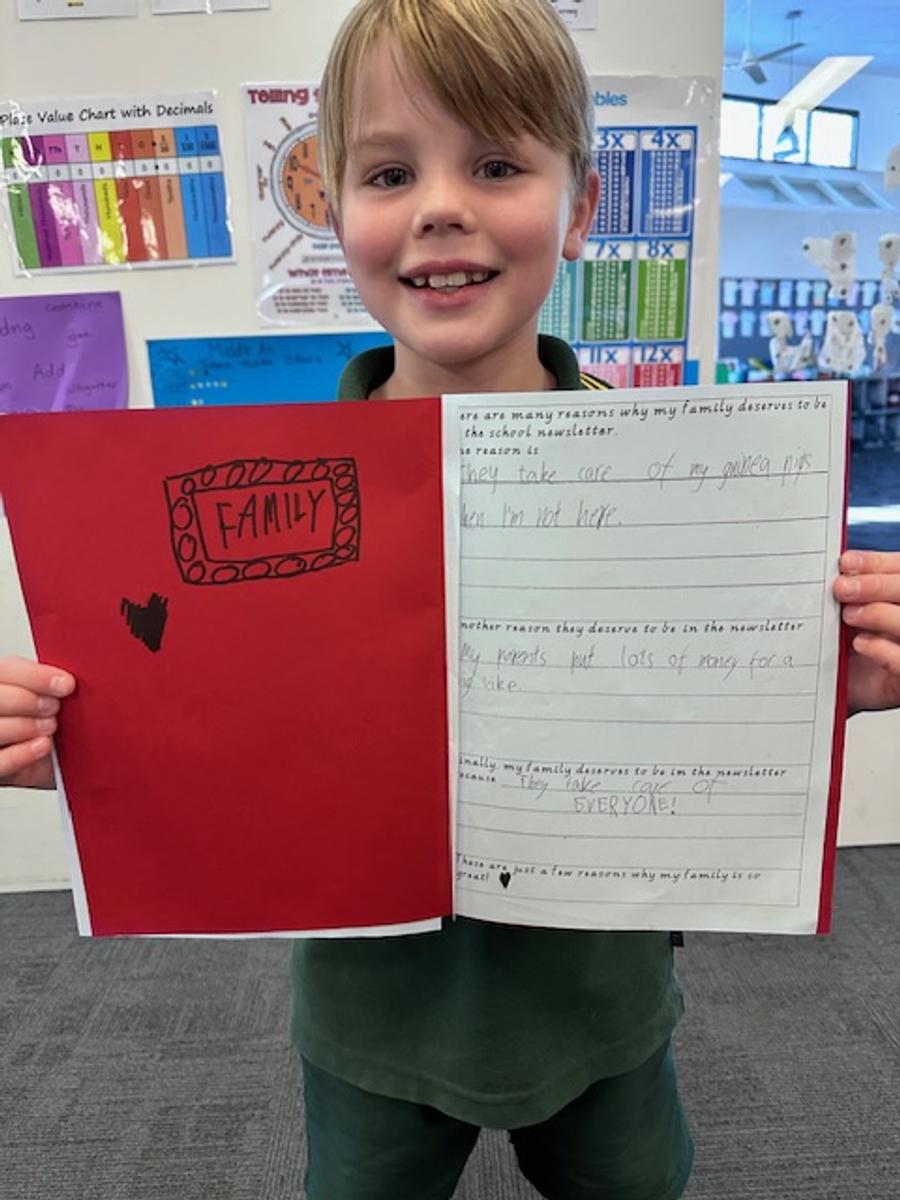 Place Value Chart with Decimals
Telling
3x 4x
7x 8x
11x 12x
Add
FAMILY
ere are many reasons why my family deserves to be
the school newsletter.
e reason is
they take care of my guinea pigs
hen I'm not here.
nother reason they deserve to be in the newsletter
My parents put lots of money for a
vike
inally, my family deserves to be in the newsletter
ecause They take care of
EVERYONE!
These are just a few reasons why my family is so
great!